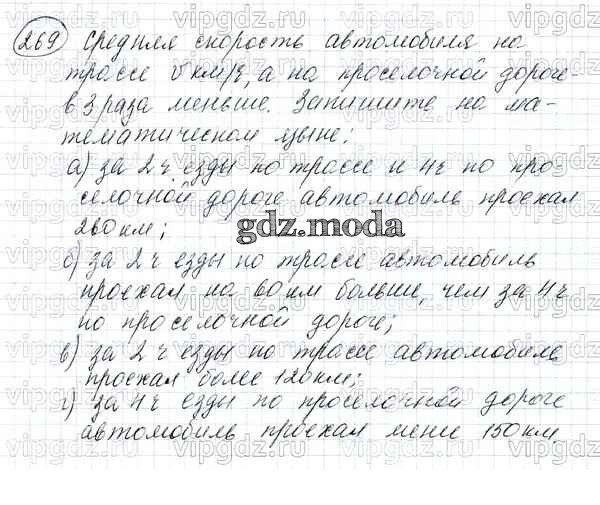 269 Средняя скорость автомобиля на
трассе v км/ч, а на проселочной дороге -
в 3 раза меньше. Запишите на ма-
тематическом языке:
а) за 2 ч езды по трассе и 4ч по про-
селочной дороге автомобиль проехал
260 км;
gdz.moda
б) за 2 ч езды по трассе автомобиль
проехал на 60 км больше, чем за 4ч
по проселочной дороге;
в) за 2 ч езды по трассе автомобиль
проехал более 120 км;
г) за 4ч езды по проселочной дороге
автомобиль проехал мене 150 км.
vipgdz.ru